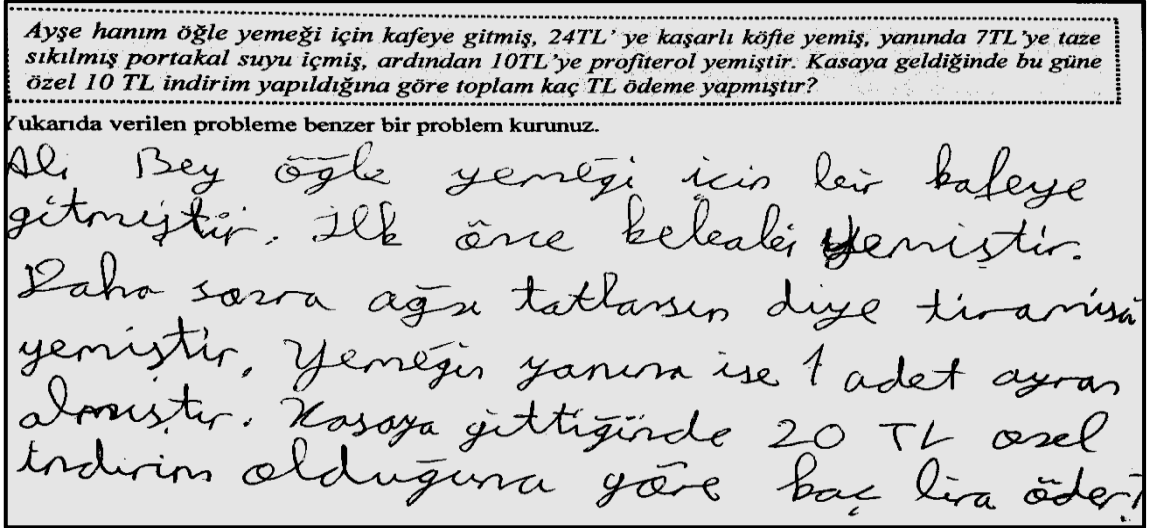 Ayşe hanım öğle yemeği için kafeye gitmiş, 24TL' ye kaşarlı köfte yemiş, yanında 7TL'ye taze
sıkılmış portakal suyu içmiş, ardından 10TL'ye profiterol yemiştir. Kasaya geldiğinde bu güne
özel 10 TL indirim yapıldığına göre toplam kaç TL ödeme yapmıştır?
Yukarıda verilen probleme benzer bir problem kurunuz.
Ali Bey öğle yemeği için bir kafeye
gitmiştir. İlk önce yemiştir.
Daha sonra ağzı tatlansın diye tiramisu
yemiştir. Yemeğin yanına ise 1 adet ayran
almıştır. Kasaya gittiğinde 20 TL özel
indirim olduğuna göre kaç lira öder?